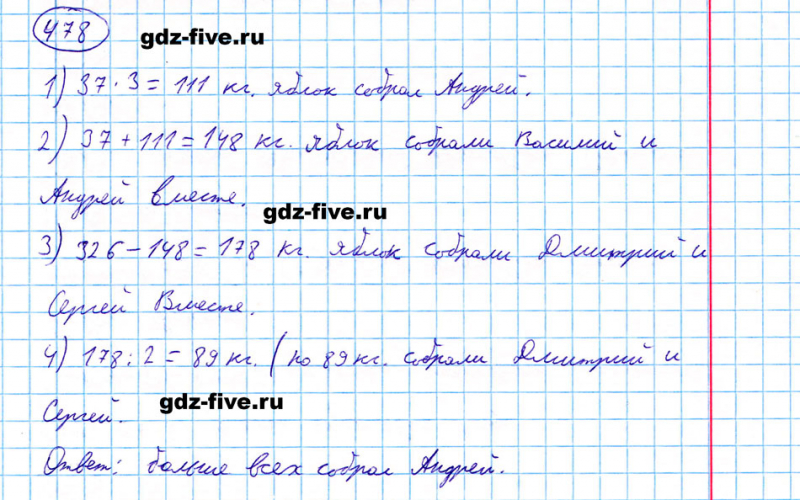 478
gdz-five.ru
1) 37 · 3 = 111 кг. яблок собрал Андрей.
2) 37 + 111 = 148 кг. яблок собрали Василий и
Андрей вместе.
gdz-five.ru
3) 326 - 148 = 178 кг. яблок собрали Дмитрий и
Сергей Вместе.
4) 178 : 2 = 89 кг. ( по 89 кг. собрали Дмитрий и
Сергей.
gdz-five.ru
Ответ: больше всех собрал Андрей.